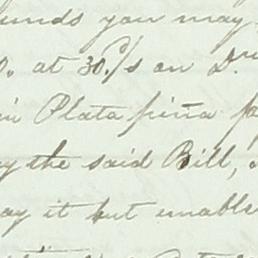 unds you may
at 30.P/s on D
in Plata piña
the said Bill,
ay it but unable